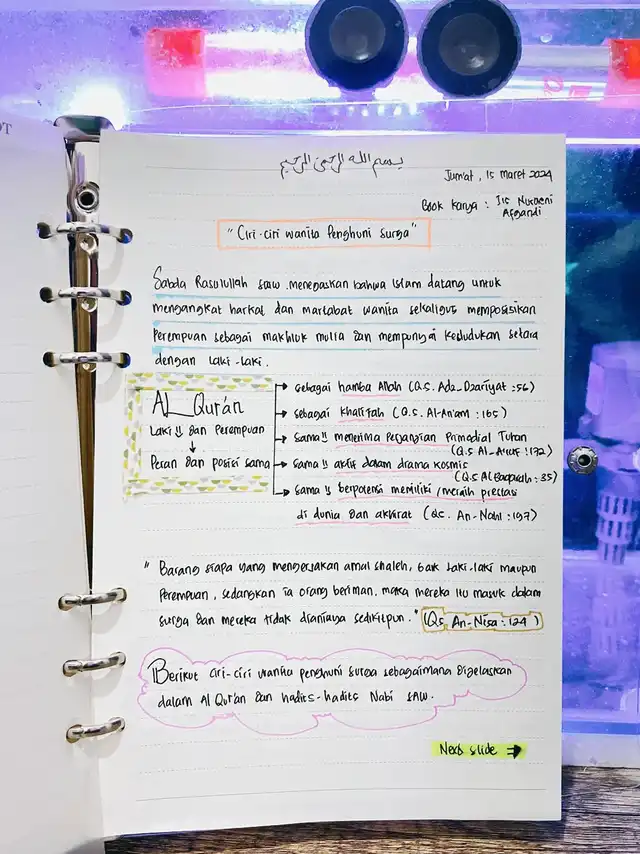 بسم الله الرحمن الرحيم
Jum'at, 15 Maret 2024
Book karya : Iis Nuraeni
Afgandi
"Ciri-ciri wanita Penghuni Surga"
Sabda Rasulullah saw. menegaskan bahwa Islam datang untuk
mengangkat harkat dan martabat wanita sekaligus memposisikan
Perempuan sebagai makhluk mulia dan mempunyai kedudukan setara
dengan laki-laki.
AL_Qur'an
Laki" dan Perempuan
↓
Peran dan posisi sama
→ sebagai hamba Allah (Q.S. Adz-Dzariyat : 56)
→ sebagai khalifah (Q.S. Al-An'am : 165)
→ sama" menerima perjanjian Primodial Tuhan
(Q.S Al-A'raf : 172)
→ sama" aktif dalam drama kosmis
(Q.S Al Baqarah : 35)
→ sama" berpotensi memiliki/meraih prestasi
di dunia dan akhirat (Qs. An-Nahl : 197)
"Barang siapa yang mengerjakan amal shaleh, baik laki-laki maupun
Perempuan, sedangkan ia orang beriman, maka mereka itu masuk dalam
surga dan mereka tidak dianiaya sedikitpun." (Qs. An-Nisa : 124)
Berikut ciri-ciri wanita penghuni surga sebagaimana dijelaskan
dalam Al Qur'an dan hadits-hadits Nabi SAW.
Next slide ⇒